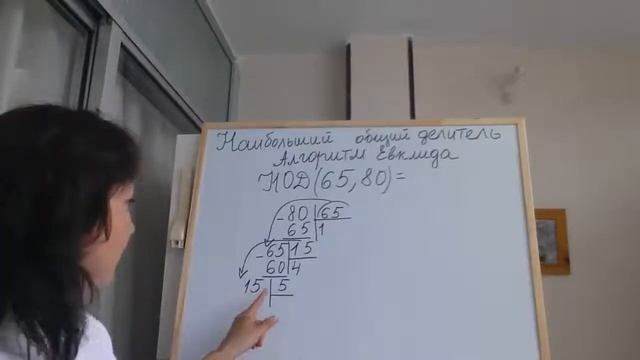 Наибольший общий делитель
Алгоритм Евклида
НОД(65,80)=
-80 65
65 1
-65 15
60 4
15 5